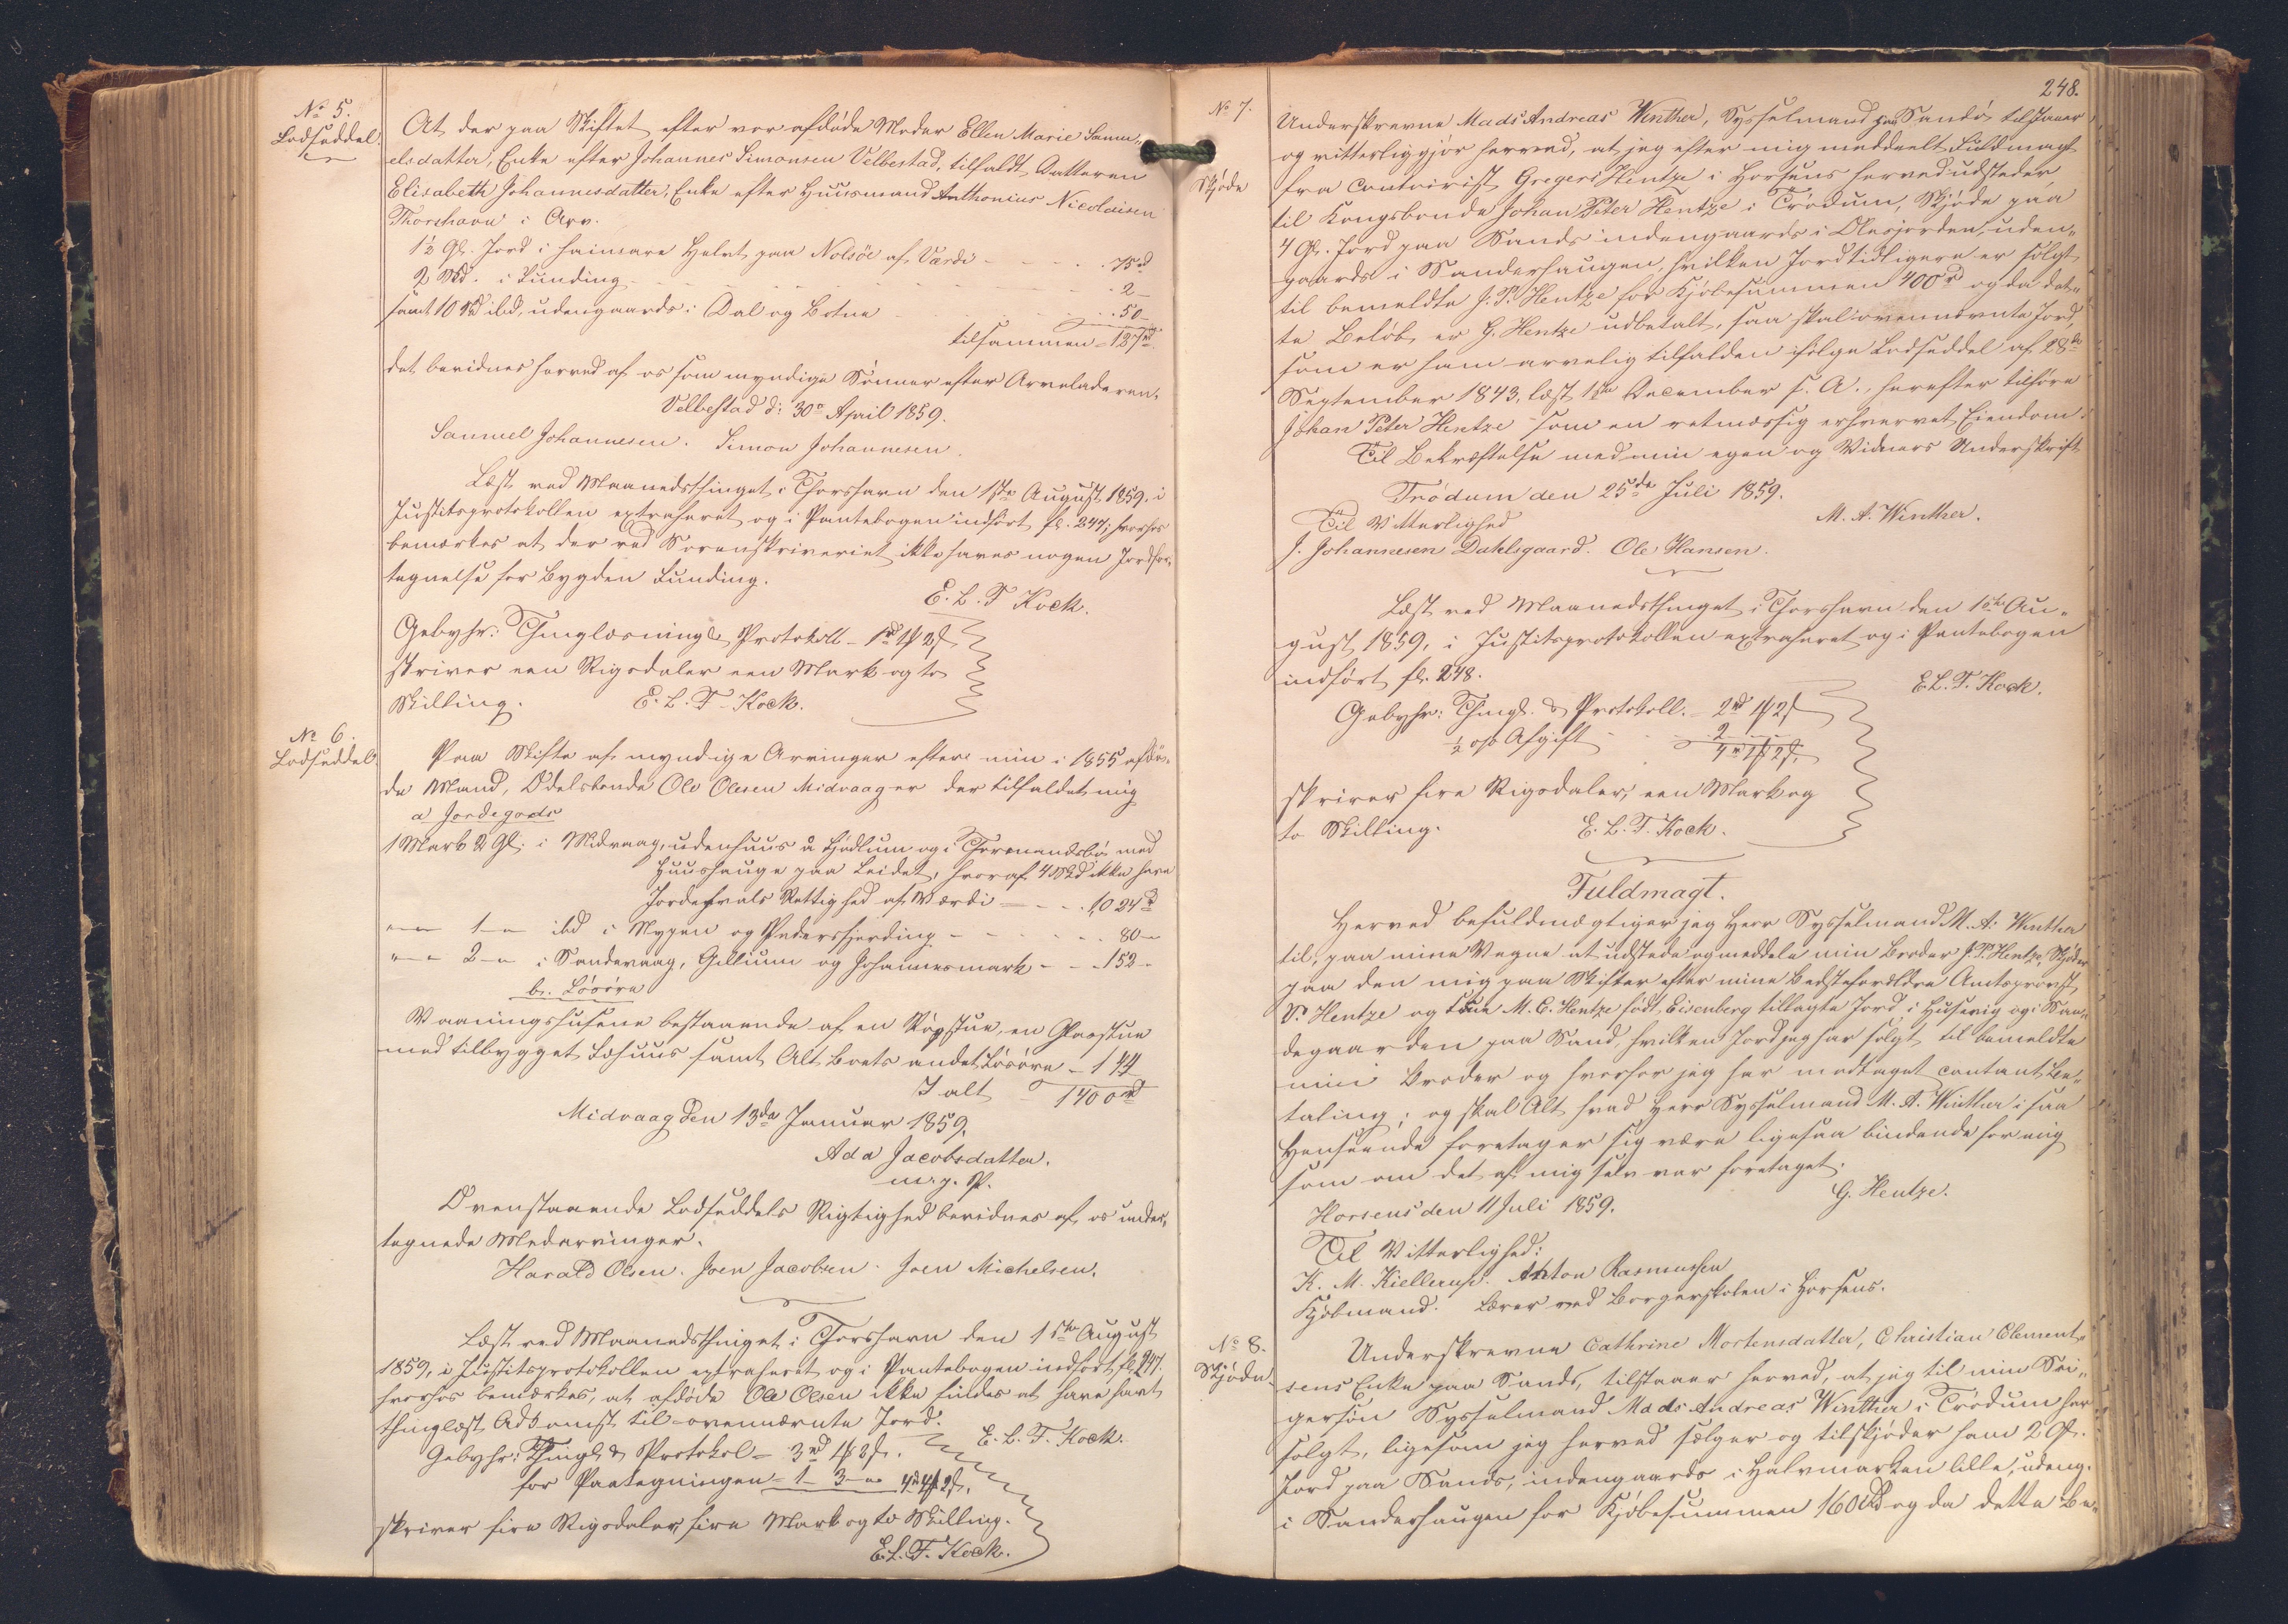 No 5.
Lodseddel.
At der paa Skiftet efter vor afdøde Moder Ellen Marie Samu„
elsdatter, Enke efter Johannes Simonsen Velbestad, tilfaldt Datteren
Elisabeth Johannesdatter, Enke efter Huusmand Anthonius Nicolaisen
Thorshavn i Arv.
1½ Gl. Jord i Haimare Helvt paa Nolsöe af Værdi - - - - 75 rd
2 Skd. i Funding - - - - 2 -
samt 10 Skd ibd, udengaards i Dal og Botne - - - 50 -
tilsammen = 127 rd.
det bevidnes herved af os som myndige Sønner efter Arveladeren.
Velbestad d: 30te April 1859.
Samuel Johannesen. Simon Johannesen.
Læst ved Maanedsthinget i Thorshavn den 1ste August 1859, i
Justitsprotokollen extraheret og i Pantebogen indført fl. 247; hvorhos
bemærkes at der ved Sorenskriveriet ikke haves nogen Jordfor„
tegnelse for Bygden Funding.
E. L. T. Kock.
Gebyhr: Thinglæsning & Protokoll - 1 rd 1 # 2 ß
skriver een Rigsdaler een Mark og to
Skilling. E. L. T. Kock.
No 6.
Lodseddel.
Paa Skifte af myndige Arvinger efter min i 1855 afdø„
de Mand, Odelsbonde Ole Olesen Midvaag er der tilfaldet mig
a Jordegods
1 Mark 2 Gl. i Midvaag, udenhuus å Hjødlum og i Thormandsbø med
Huushauge paa Leidet, hvoraf 4 Skd ikke have
Jordehvals Rettighed af Værdi - - - 1024 rd
„ — 1 — ibd i Nygen og Pedersfjerding - - - - 80 -
„ — 2 — i Sandevaag, Gillium og Johannesmark - - 152 -
b. Løsøre
Vaaningshusene bestaaende af en Røgstue, en Glasstue
med tilbygget Fæhuus samt Alt Boets andet Løsøre - 144
I alt 1400 rd
Midvaag den 13de Januar 1859.
Ada Jacobsdatter.
m. g. P.
Ovenstaaende Lodseddels Rigtighed bevidnes af os under„
tegnede Medarvinger.
Harald Olsen. Joen Jacobsen. Joen Michelsen.
Læst ved Maanedsthinget i Thorshavn den 1ste August
1859, i Justitsprotokollen extraheret og i Pantebogen indført fl. 247.
hvorhos bemærkes, at afdøde Ole Olsen ikke findes at have havt
thinglæst Adkomst til ovennævnte Jord.
E. L. T. Kock.
Gebyhr: Thingl. & Protokol = 3 rd 1 # 2 ß.
for Paategningen = 1 - 3 - „ 4 rd 4 # 2 ß.
skriver fire Rigsdaler, fire Mark og to Skilling.
E. L. T. Kock.
248.
No 7.
Skjøde
Underskrevne Mads Andreas Winther, Sysselmand paa Sandø tilstaaer
og vitterliggjør herved, at jeg efter mig meddeelt Fuldmagt
fra Contoirist Gregers Hentze i Horsens herved udsteder
til Kongsbonde Johan Peter Hentze i Trødum, Skjøde paa
4 Gl. Jord paa Sands indengaards i Olesjorden, uden„
gaards i Sanderhaugen, hvilken Jord tidligere er solgt
til bemeldte J. P. Hentze for Kjøbesummen 400 rd og da det„
te Beløb er G. Hentze udbetalt, saa skal ovennævnte Jord,
som er ham arvelig tilfalden ifølge Lodseddel af 28de
September 1843, læst 1ste December s. A., herefter tilhøre
Johan Peter Hentze som en retmæssig erhvervet Eiendom.
Til Bekræftelse med min egen og Vidners Underskrift
Trödum den 25de Juli 1859.
M. A. Winther.
Til Vitterlighed
J. Johannesen Dahlsgaard. Ole Hansen.
Læst ved Maanedsthinget i Thorshavn den 1ste Au„
gust 1859, i Justitsprotokollen extraheret og i Pantebogen
indført fl. 248.
E. L. T. Kock.
Gebyhr: Thingl. & Protokoll. - 2 rd 1 # 2 ß
½ o/o Afgift - - - 2
4 rd 1 # 2 ß.
skriver fire Rigsdaler, een Mark og
to Skilling. E. L. T. Kock.
Fuldmagt.
Herved befuldmægtiger jeg Herr Sysselmand M. A. Winther
til, paa mine Vegne at udstede og meddele min Broder J. P. Hentze, Skjøder
paa den mig paa Skifter efter mine Bedsteforældre Amtsprovst
P. Hentze og Frue M. C. Hentze født Eisenberg tillagte Jord i Husevig og i San„
degaarden paa Sand, hvilken Jord jeg har solgt til bemeldte
min Broder og hvorfor jeg har modtaget contant Be„
taling; og skal Alt hvad Herr Sysselmand M. A. Winther i saa
Henseende foretager sig være ligesaa bindende for mig
som om det af mig selv var foretaget.
Horsens den 11 Juli 1859.
G. Hentze.
Til Vitterlighed:
K. M. Kiellerup. Anton Rasmussen
Kjøbmand. Lærer ved Borgerskolen i Horsens.
No 8.
Skjøde.
Underskrevne Cathrine Mortensdatter, Christian Clement„
sens Enke paa Sands, tilstaaer herved, at jeg til min Svi„
gersøn Sysselmand Mads Andreas Winther i Trødum har
solgt, ligesom jeg herved sælger og tilskjøder ham 2 Gl.
Jord paa Sands, indengaards i Halvmarken lille, udeng.
i Sanderhaugen for Kjøbesummen 160 Rd og da dette Be„